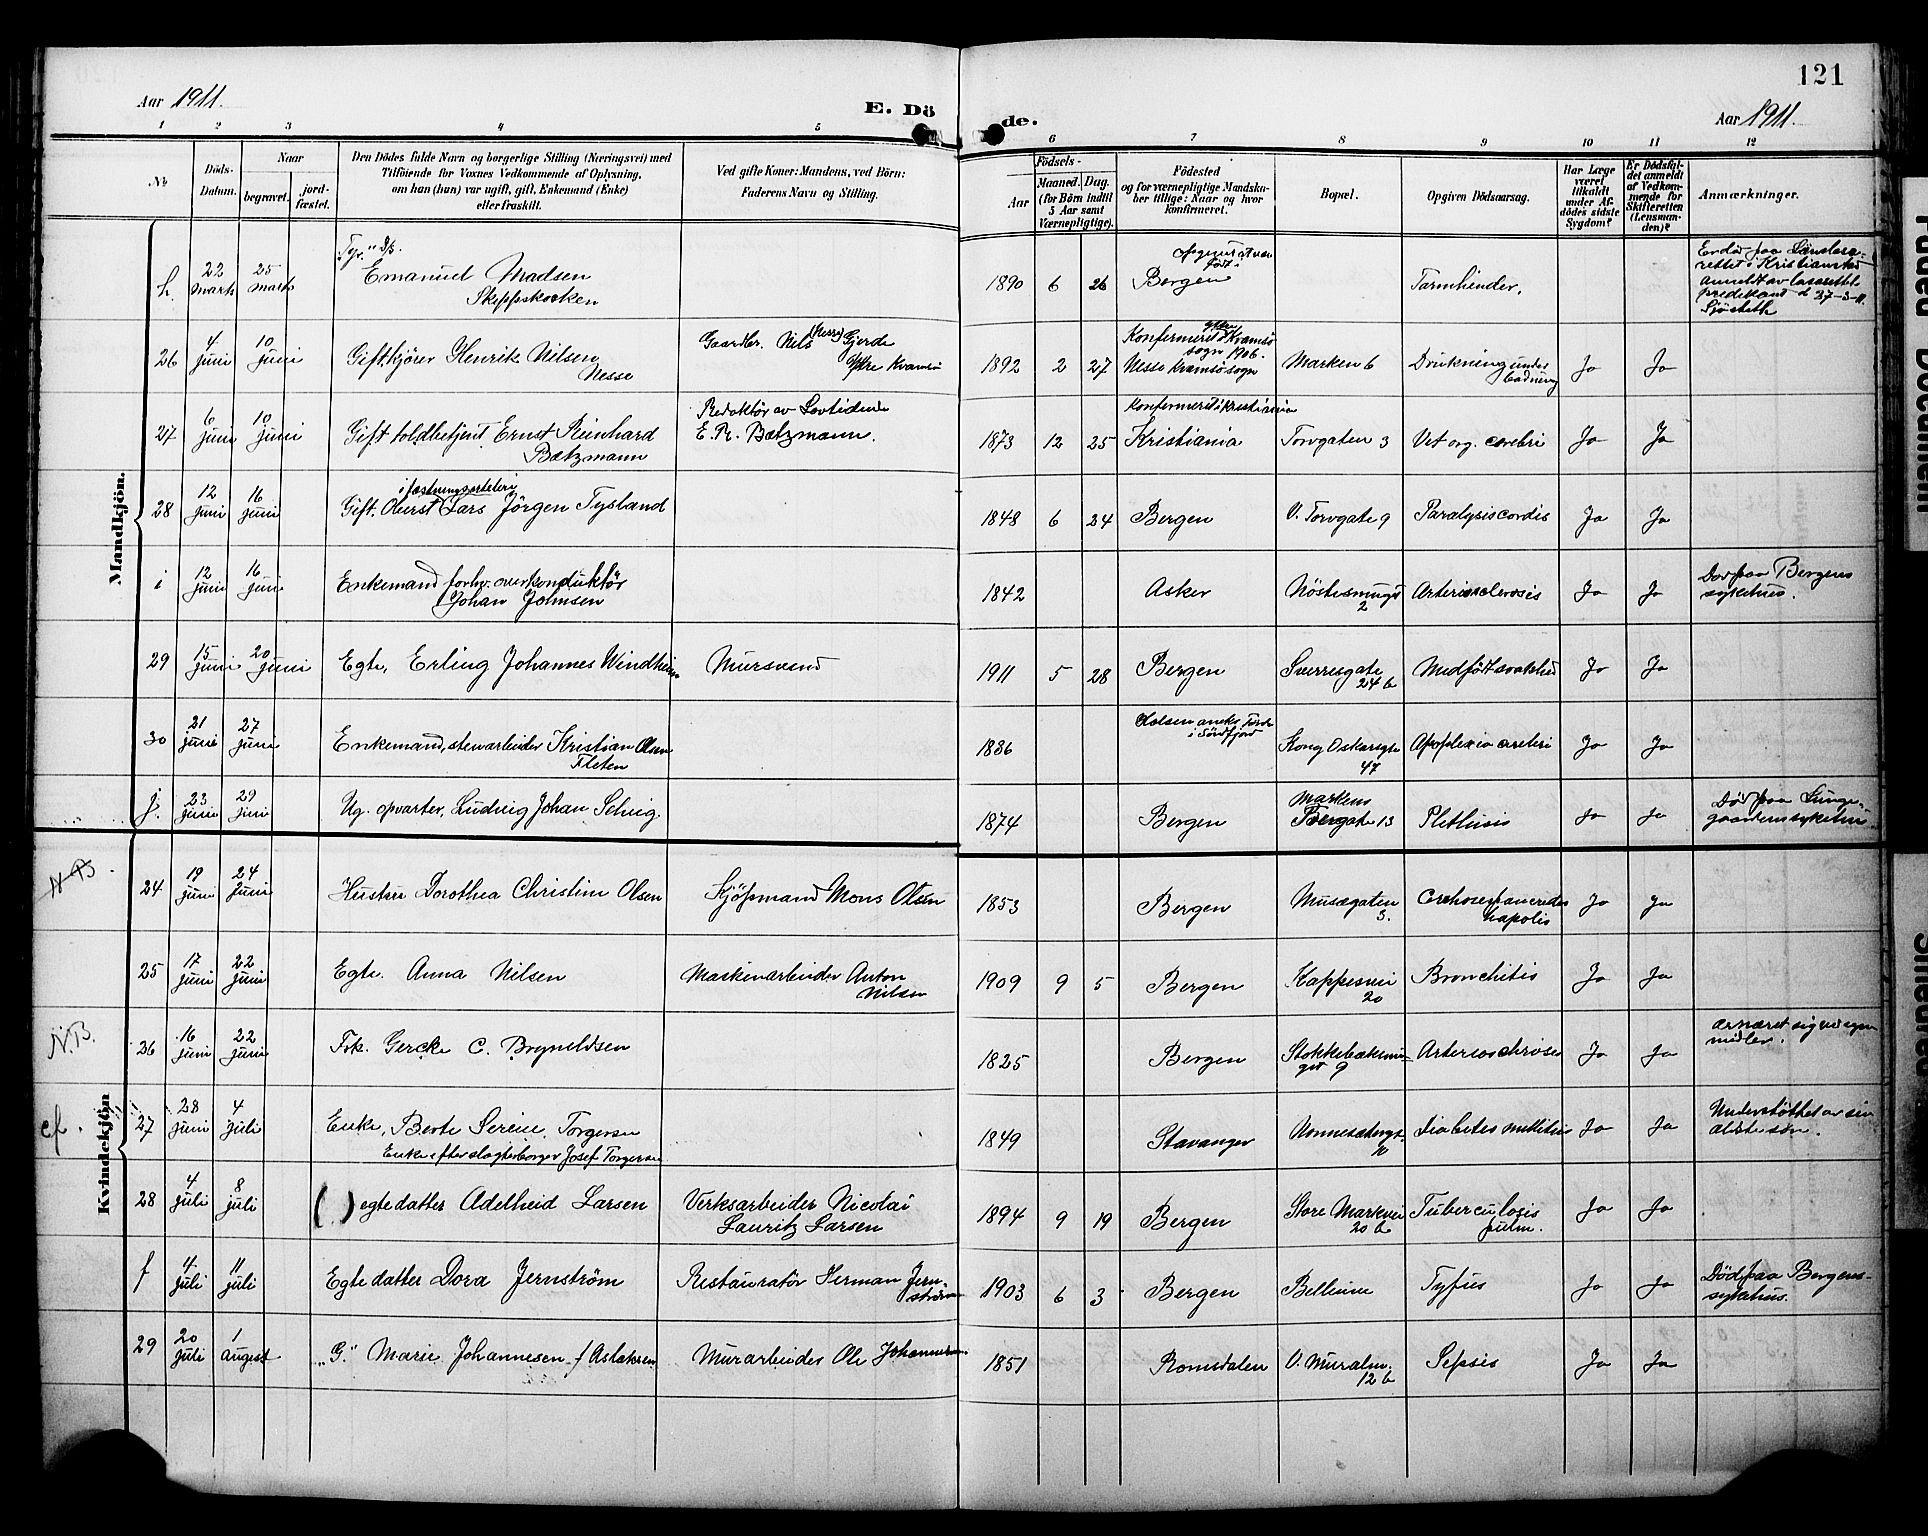 121
Aar 1911.
E. Dö
de.
Aar 1911.
1 2 3 4 5
6 7 8 9 10 11 12
No
Döds-
Datum.
Naar
begravet.
jord-
fæstet.
Den Dödes fulde Navn og borgerlige Stilling (Næringsvei) med
Tilföiende for Voxnes Vedkommende af Oplysning,
om han (hun) var ugift, gift, Enkemand (Enke)
eller fraskilt.
Ved gifte Koner: Mandens, ved Börn:
Faderens Navn og Stilling.
Födsels-
Aar
Maaned.
Dag.
(for Börn indtil
5 Aar samt
Værnepligtige).
Födested
og for værnepligtige Mandska-
ber tillige: Naar og hvor
konfirmeret.
Bopæl.
Opgiven Dödsaarsag.
Har Læge
været
tilkaldt
under Af-
dödes sidste
Sygdom?
Er Dödsfal-
det anmeldt
af Vedkom-
mende for
Skifteretten
(Lensman-
den)?
Anmærkninger.
Mandkjön.
h. 22 marts 25 marts
Emanuel Madsen
Skeppskocken
1890 6 26
Bergen
Tarmhinder.
26 4 juni 10 juni
Gift kjörer Henrik Nilsen
Nesse
Gaardbr. Nils (Nesse) Gjerde
Ytre Kvamsö
1892 2 27
Konfirmert Ytre Kvamsö
sogn 1906.
Nesse Kvamsö sogn
Marken 6
Drukning under
badning
Ja Ja
27 6 juni 10 juni
Gift toldbetjent Ernst Reinhard
Bætzmann
Redaktör av Lovtidende
E. R. Bætzmann.
1873 12 25
Konfirmert i Kristiania
Kristiania
Torvgaten 3
Vet org. cerebri
Ja Ja
28 12 juni 16 juni
i fæstningsartileri
Gift. Oberst Lars Jörgen Tysland
1848 6 24
Bergen
V. Torvgate 9
Paralysis cordis
Ja Ja
i 12 juni 16 juni
Enkemand forhv. overkonduktör
Johan Johnsen
1842
Asker
Nöstesmuget
2
Arteriosclerosis
Ja Ja
Död paa Bergens
sykehus.
29 15 juni 20 juni
Egte, Erling Johannes Windheim
Mursvend
1911 5 28
Bergen
Sverresgate
24 b
Medfödt svakhed
Ja Ja
30 21 juni 27 juni
Enkemand, stenarbeider Kristian Olsen
Fleten
1836
Holsen aneks Förde
i Söndfjord
Kong Oskarsgte
47
Apoplexia cerebri
Ja Ja
j. 23 juni 29 juni
Ug. opvarter, Ludvig Johan Selvig.
1874
Bergen
Markens
Bergate 13
Phthisis
Ja Ja
Död paa Lunge-
gaardens sykehus
Kvindekjön
N.B.
24 19 juni 24 juni
Hustru Dorothea Christine Olsen
Kjöpmand Mons Olsen
1853
Bergen
Musægaten
3.
Ja Ja
25 17 juni 22 juni
Egte. Anna Nilsen
Maskinarbeider Anton
Nilsen
1909 9 5
Bergen
Kappesvei
20
Bronchitis
Ja Ja
N.B.
26 16 juni 22 juni
Frk. Gercke C. Brynildsen
1825
Bergen
Stokkebæksmu-
get 9
Arteriosclerosis
Ja Ja
ernæret sig ved egne
midler.
cf.
27 28 juni 4 juli
Enke, Berte Serine Torgersen
Enke efter slagterborger Josef Torgersen
1849
Stavanger
10
Diabetes mellitus
Ja Ja
Understöttet av sin
ældste sön.
28 4 juli 8 juli
( ) egte datter Adelheid Larsen
Verksarbeider Nicolai
Lauritz Larsen
1894 9 19
Bergen
Store Markvei
20 b
Tuberculosis
pulm.
Ja Ja
f 4 juli 11 juli
Egte datter Dora Jernström
Restauratör Herman Jern-
ström
1903 6 3
Bergen
Bellevue
Tyfus
Ja Ja
Död paa Bergens-
sykehus.
29 20 juli 1 august
"G." Marie Johannesen f. Aslaksen
Murarbeider Ole Johannesen
1851
Romsdalen
V. Muralm.
12 b
Sepsis
Ja Ja